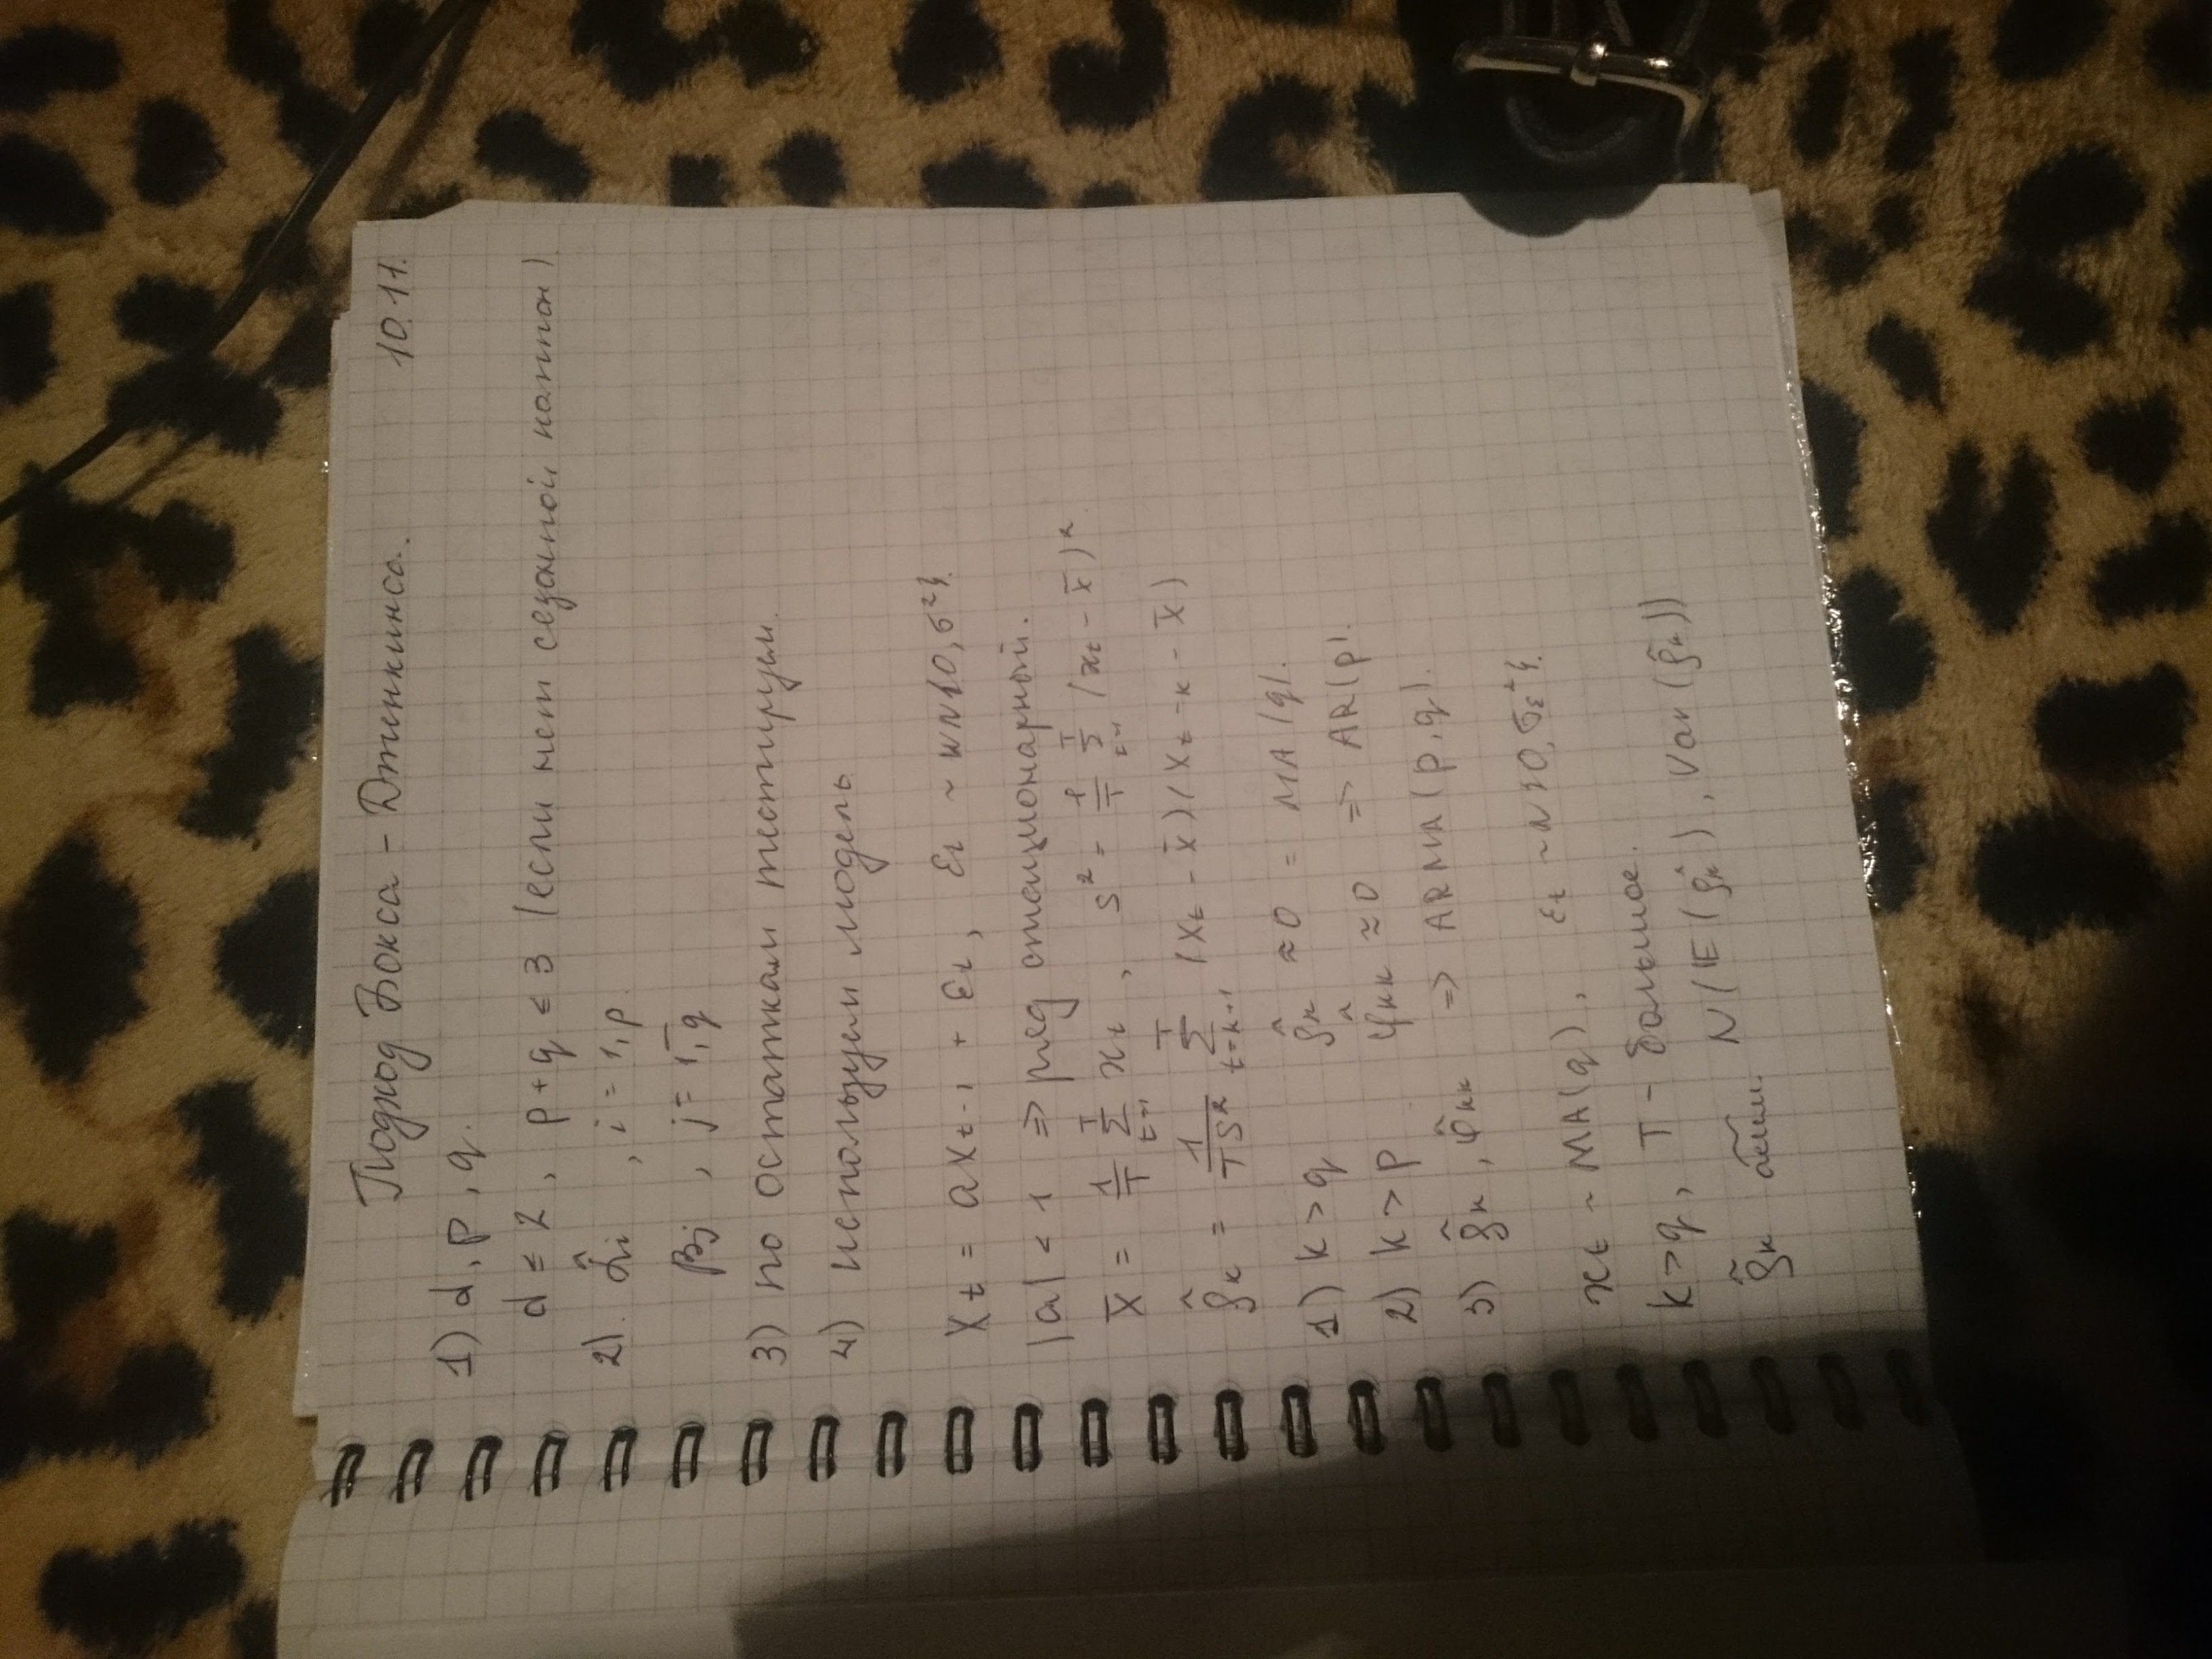 Подход Бокса - Дженкинса. 10.11.
1) d, p, q.
d ≤ 2, p + q ≤ 3 (если нет сезонной компон)
2). α̂i , i = 1, p.
βj , j = 1, q
3) по остаткам тестируем.
4) используем модель
Xt = aXt-1 + εt, εt ~ WN{0, σ²}.
|a| < 1 => ряд стационарный.
X̄ = 1/T Σ(t=1..T) xt , S² = 1/T Σ(t=1..T) (xt - x̄)²
ρ̂k = 1/(TS²) Σ(t=k+1..T) (Xt - x̄)(Xt-k - x̄)
1) k > q ρ̂k ≈ 0 = MA(q).
2) k > p φ̂kk ≈ 0 => AR(p).
3) ρ̂k , φ̂kk => ARMA(p,q).
xt ~ MA(q), εt ~ N{0, σε²}.
k > q, T - большое.
ρ̂k асим. N(E(ρ̂k), Var(ρ̂k))